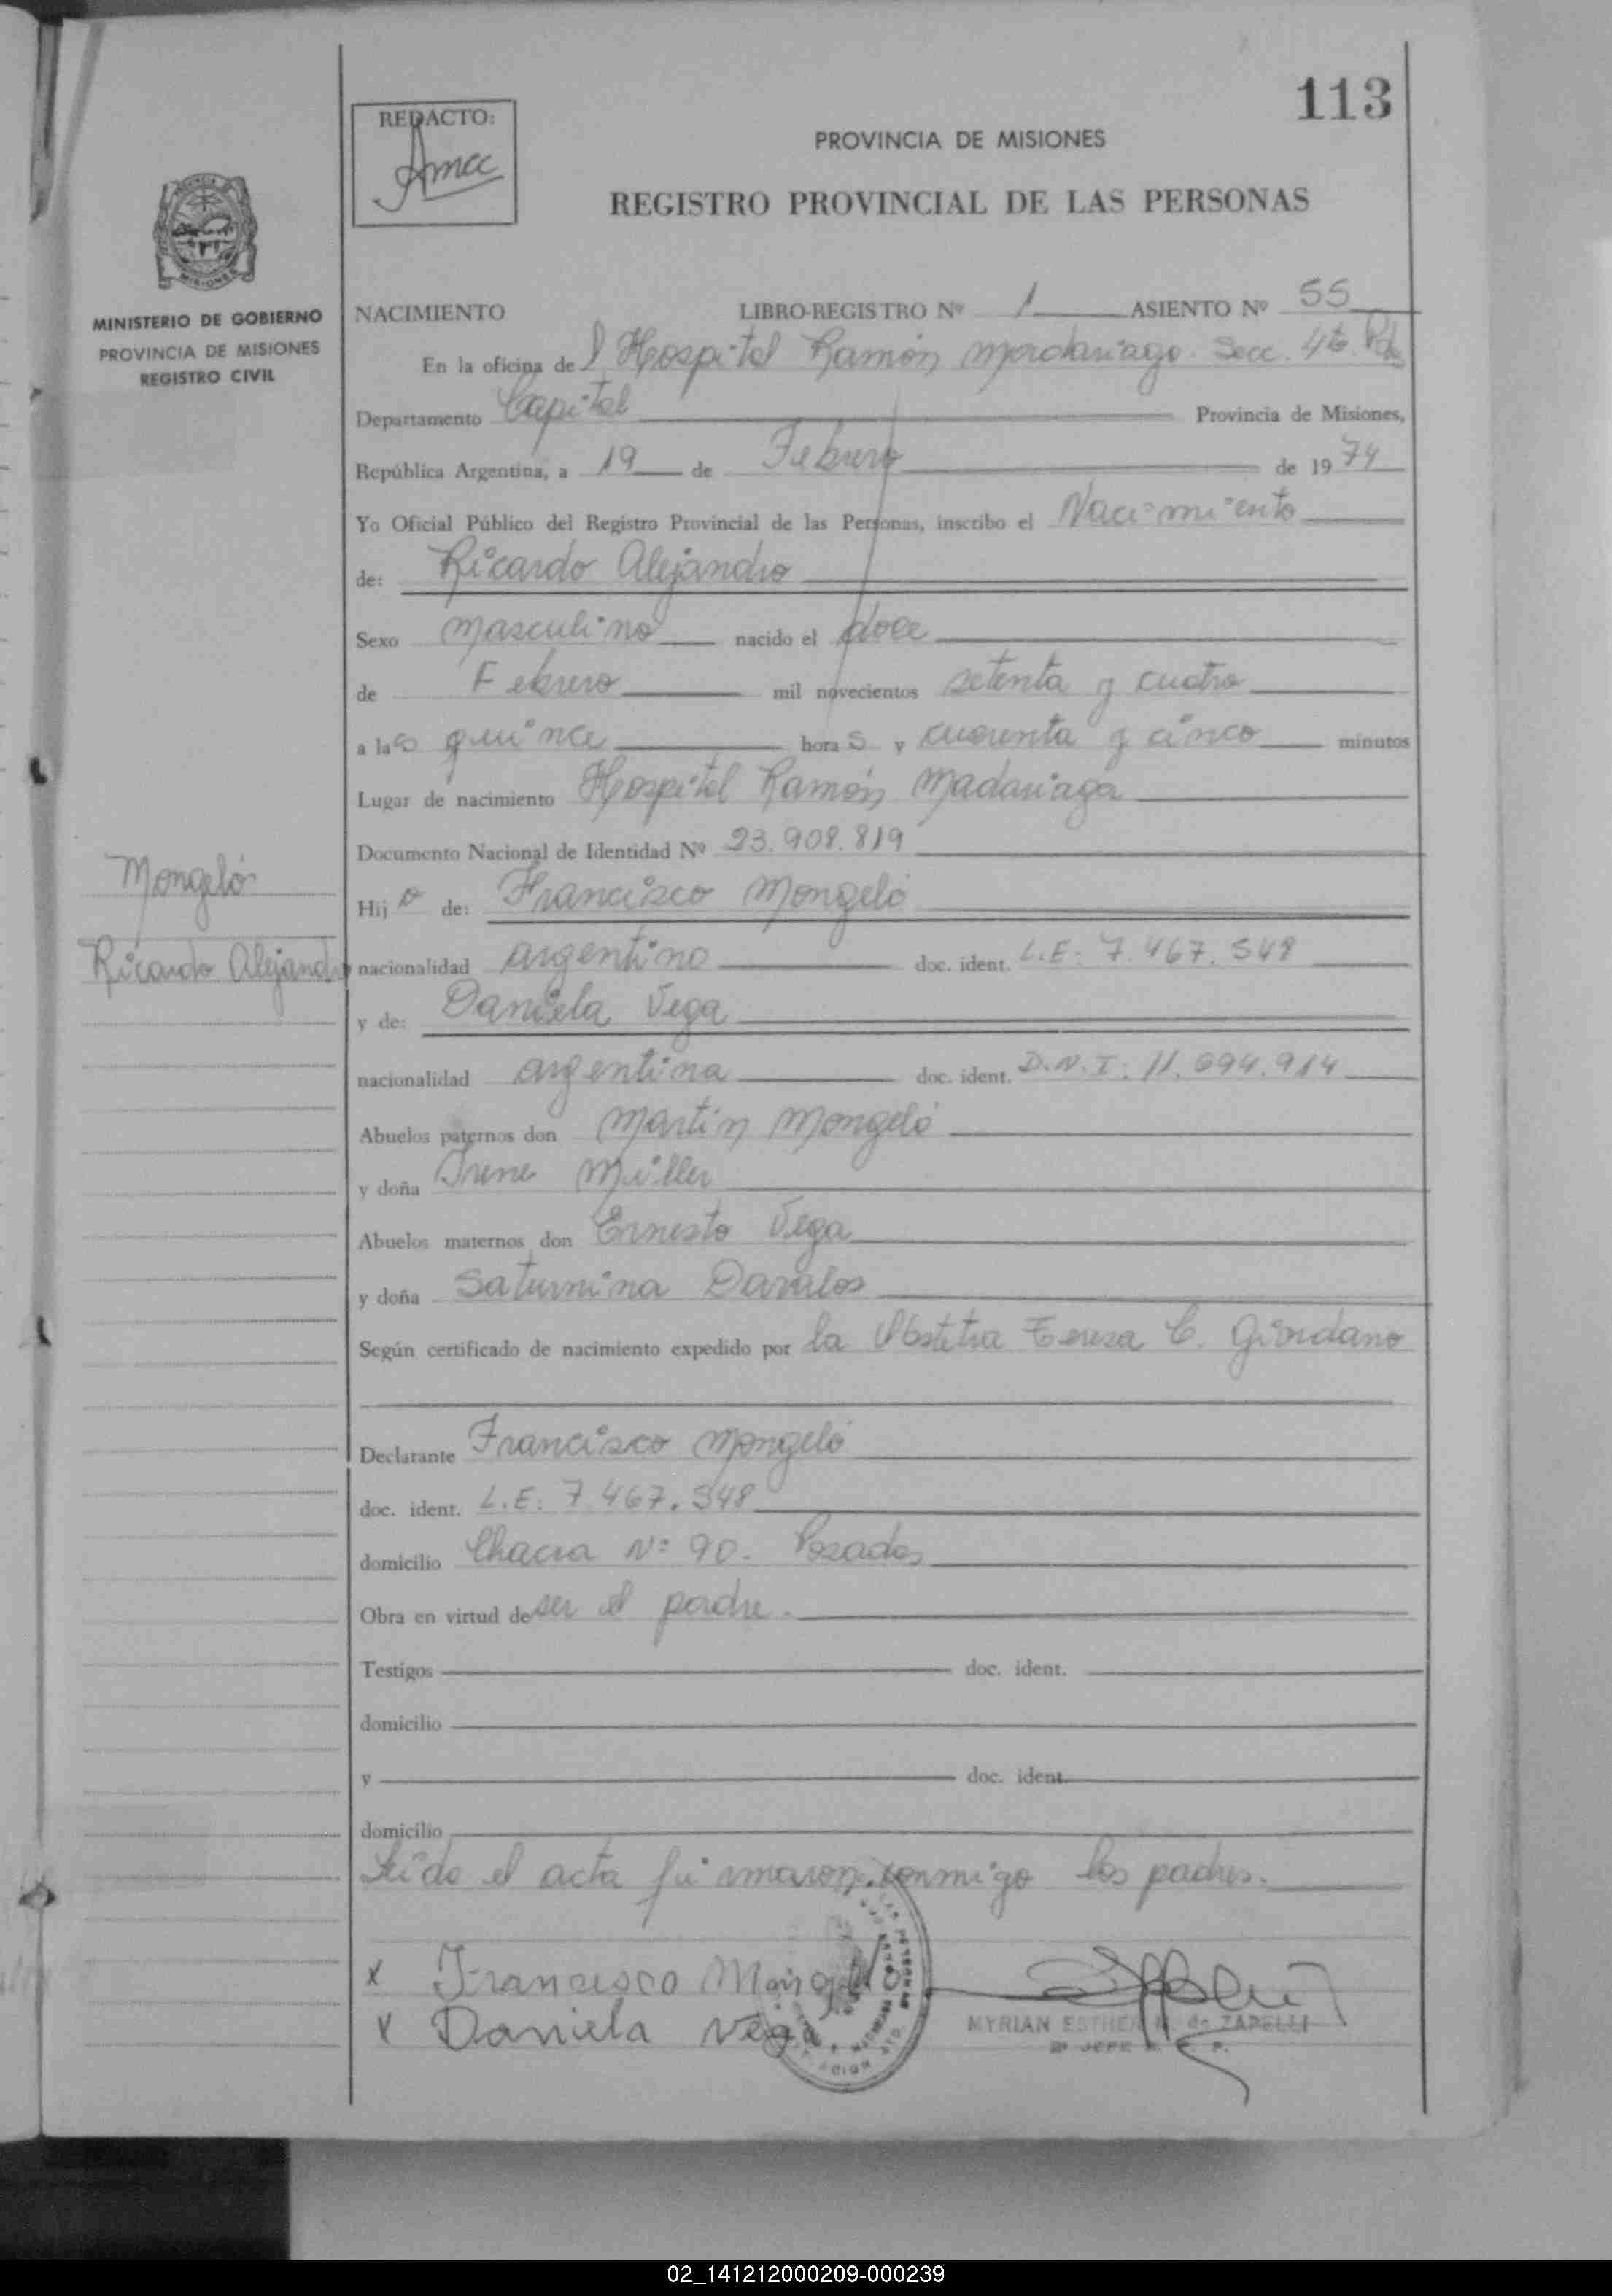 113
REDACTO:
PROVINCIA DE MISIONES
REGISTRO PROVINCIAL DE LAS PERSONAS
MISIONES
MINISTERIO DE GOBIERNO
PROVINCIA DE MISIONES
REGISTRO CIVIL
NACIMIENTO LIBRO-REGISTRO Nº 1 ASIENTO Nº 55
En la oficina del Hospital Ramón Madariaga. Secc. 4ta. Pdas
Departamento Capital Provincia de Misiones,
República Argentina, a 19 de Febrero de 1974
Yo Oficial Público del Registro Provincial de las Personas, inscribo el Nacimiento
de: Ricardo Alejandro
Sexo masculino nacido el doce
de Febrero mil novecientos setenta y cuatro
a las quince horas y cuarenta y cinco minutos
Lugar de nacimiento Hospital Ramón Madariaga
Documento Nacional de Identidad Nº 23.908.819
Mongeló
Ricardo Alejandro
Hijo de: Francisco Mongeló
nacionalidad argentino doc. ident. L.E: 7.467.548
y de: Daniela Vega
nacionalidad argentina doc. ident. D.N.I: 11.694.914
Abuelos paternos don Martín Mongeló
y doña Irene Müller
Abuelos maternos don Ernesto Vega
y doña Saturnina Davalos
Según certificado de nacimiento expedido por la Obstetra Teresa C. Giordano
Declarante Francisco Mongeló
doc. ident. L.E: 7.467.548
domicilio Chacra Nº 90. Posadas
Obra en virtud de ser el padre.
Testigos doc. ident.
domicilio
y doc. ident.
domicilio
Leída el acta firmaron conmigo los padres.
x Francisco Mongelo
x Daniela Vega
MYRIAN ESTHER de ZAPELLI
02_141212000209-000239